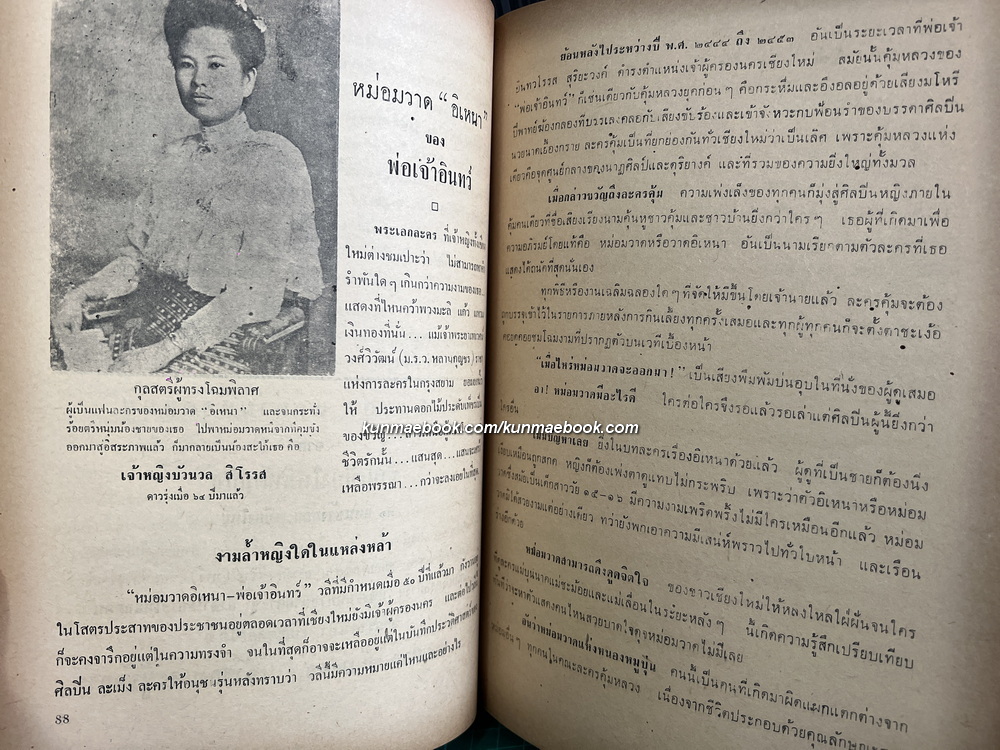 หม่อมวาด “อิเหนา”
ของ
พ่อเจ้าอินทร์
พระเอกละคร ที่เจ้าหญิงทั้ง
ใหม่ต่างชมเปาะว่า ไม่สามารถ
รำพันใด ๆ เกินกว่าความงามของ
แสดงที่ไหนคว้าพวงมะลิ แก้ว แหวน
เงินทองที่นั่น... แม้เจ้าพระยาเทเวศร์
วงศ์วิวัฒน์ (ม.ร.ว. หลานกุญชร)
แห่งการละครในกรุงสยาม ยอม
ให้ ประทานดอกไม้ประดับเพ็ชร
ของขวัญ...
ชีวิตรักนั้น... แสนสุด...
เหลือพรรณา... กว่าจะลงเอย
กุลสตรีผู้ทรงโฉมพิลาศ
ผู้เป็นแฟนละครของหม่อมวาด “อิเหนา” และจนกระทั่ง
ร้อยตรีหนุ่มน้องชายของเธอ ไปพาหม่อมวาดหนีจากคุ้มขัง
ออกมาสู่อิสระภาพแล้ว ก็มากลายเป็นน้องสะใภ้เธอ คือ
เจ้าหญิงบัวนวล สิโรรส
ดาวรุ่งเมื่อ ๖๔ ปีมาแล้ว
งามล้ำหญิงใดในแหล่งหล้า
“หม่อมวาดอิเหนา–พ่อเจ้าอินทร์” วลีที่มีกำหนดเมื่อ ๕๐ ปีที่แล้วมา
ในโสตรประสาทของประชาชนอยู่ตลอดเวลาที่เชียงใหม่ยังมีเจ้าผู้ครองนคร และต่อไป
ก็จะคงจารึกอยู่แต่ในความทรงจำ จนในที่สุดก็อาจจะเหลืออยู่แต่ในบันทึกประวัติศาสตร์
ศิลปิน ละเม็ง ละครให้อนุชนรุ่นหลังทราบว่า วลีนี้มีความหมายแค่ไหนและอย่างไร
88
ย้อนหลังไประหว่างปี พ.ศ. ๒๔๔๔ ถึง ๒๔๕๓ อันเป็นระยะเวลาที่พ่อเจ้า
อินทวโรรส สุริยะวงศ์ ดำรงตำแหน่งเจ้าผู้ครองนครเชียงใหม่ สมัยนั้นคุ้มหลวงของ
“พ่อเจ้าอินทร์” ก็เช่นเดียวกับคุ้มหลวงยุคก่อน ๆ คือกระหึ่มและอึงอลอยู่ด้วยเสียงมโหรี
ปี่พาทย์ฆ้องกลองที่บรรเลงคลอกับเสียงขับร้องและเข้าจังหวะกับฟ้อนรำของบรรดาศิลปิน
นวยนาดเยื้องกราย ละครคุ้มเป็นที่ยกย่องกันทั่วเชียงใหม่ว่าเป็นเลิศ เพราะคุ้มหลวงแห่ง
เดียวคือจุดศูนย์กลางของนาฏศิลป์และดุริยางค์ และที่รวมของความยิ่งใหญ่ทั้งมวล
เมื่อกล่าวขวัญถึงละครคุ้ม ความเพ่งเล็งของทุกคนก็มุ่งสู่ศิลปินหญิงภายใน
คุ้มคนเดียวที่ชื่อเสียงเรียงนามคุ้นหูชาวคุ้มและชาวบ้านยิ่งกว่าใคร ๆ เธอผู้ที่เกิดมาเพื่อ
ความอภิรมย์โดยแท้คือ หม่อมวาดหรือวาดอิเหนา อันเป็นนามเรียกตามตัวละครที่เธอ
แสดงได้ถนัดที่สุดนั่นเอง
ทุกพิธีหรืองานเฉลิมฉลองใด ๆ ที่จัดให้มีขึ้นโดยเจ้านายแล้ว ละครคุ้มจะต้อง
ถูกบรรจุเข้าไว้ในรายการภายหลังการกินเลี้ยงทุกครั้งเสมอและทุกผู้ทุกคนก็จะตั้งตาชะเง้อ
คอยคุยยอชมโฉมงามที่ปรากฏตัวบนเวทีเบื้องหน้า
“เมื่อไหร่หม่อมวาดจะออกมา!” เป็นเสียงพึมพัมบ่นอุบในที่นั่งของผู้ดูเสมอ
อา! หม่อมวาดมีอะไรดี ใครต่อใครจึงรอแล้วรอเล่าแต่ศิลปินผู้นี้ยิ่งกว่า
ใครอื่น
ไม่มีปัญหาเลย ยิ่งในบทละครเรื่องอิเหนาด้วยแล้ว ผู้ดูที่เป็นชายก็ต้องนิ่ง
เงียบเหมือนถูกสกด หญิงก็ต้องเพ่งตาดูแทบไม่กระพริบ เพราะว่าตัวอิเหนาหรือหม่อม
วาดซึ่งสมัยเป็นเด็กสาววัย ๑๕–๑๖ มีความงามเพริดพริ้งไม่มีใครเหมือนอีกแล้ว หม่อม
วาดมิได้สวยงามแต่อย่างเดียว ทว่ายังพกเอาความมีเสน่ห์พราวไปทั่วใบหน้า และเรือน
ร่างอีกด้วย
หม่อมวาดสามารถดึงดูดจิตใจ ของชาวเชียงใหม่ให้หลงใหลใฝ่ฝันจนใคร
นี้เกิดความรู้สึกเปรียบเทียบ
กันทีว่าจะหาตัวแสดงคนไหนสวยบาดใจดุจหม่อมวาดไม่มีเลย
อันว่าหม่อมวาดแห่งหนองหมูปุ้น คนนี้เป็นคนที่เกิดมาผิดแผกแตกต่างจาก
หม่อมอื่นๆ ทุกคนในคณะละครคุ้มหลวง เนื่องจากชีวิตประกอบด้วยคุณลักษณะ
kunmaebook.com/kunmaebook.com